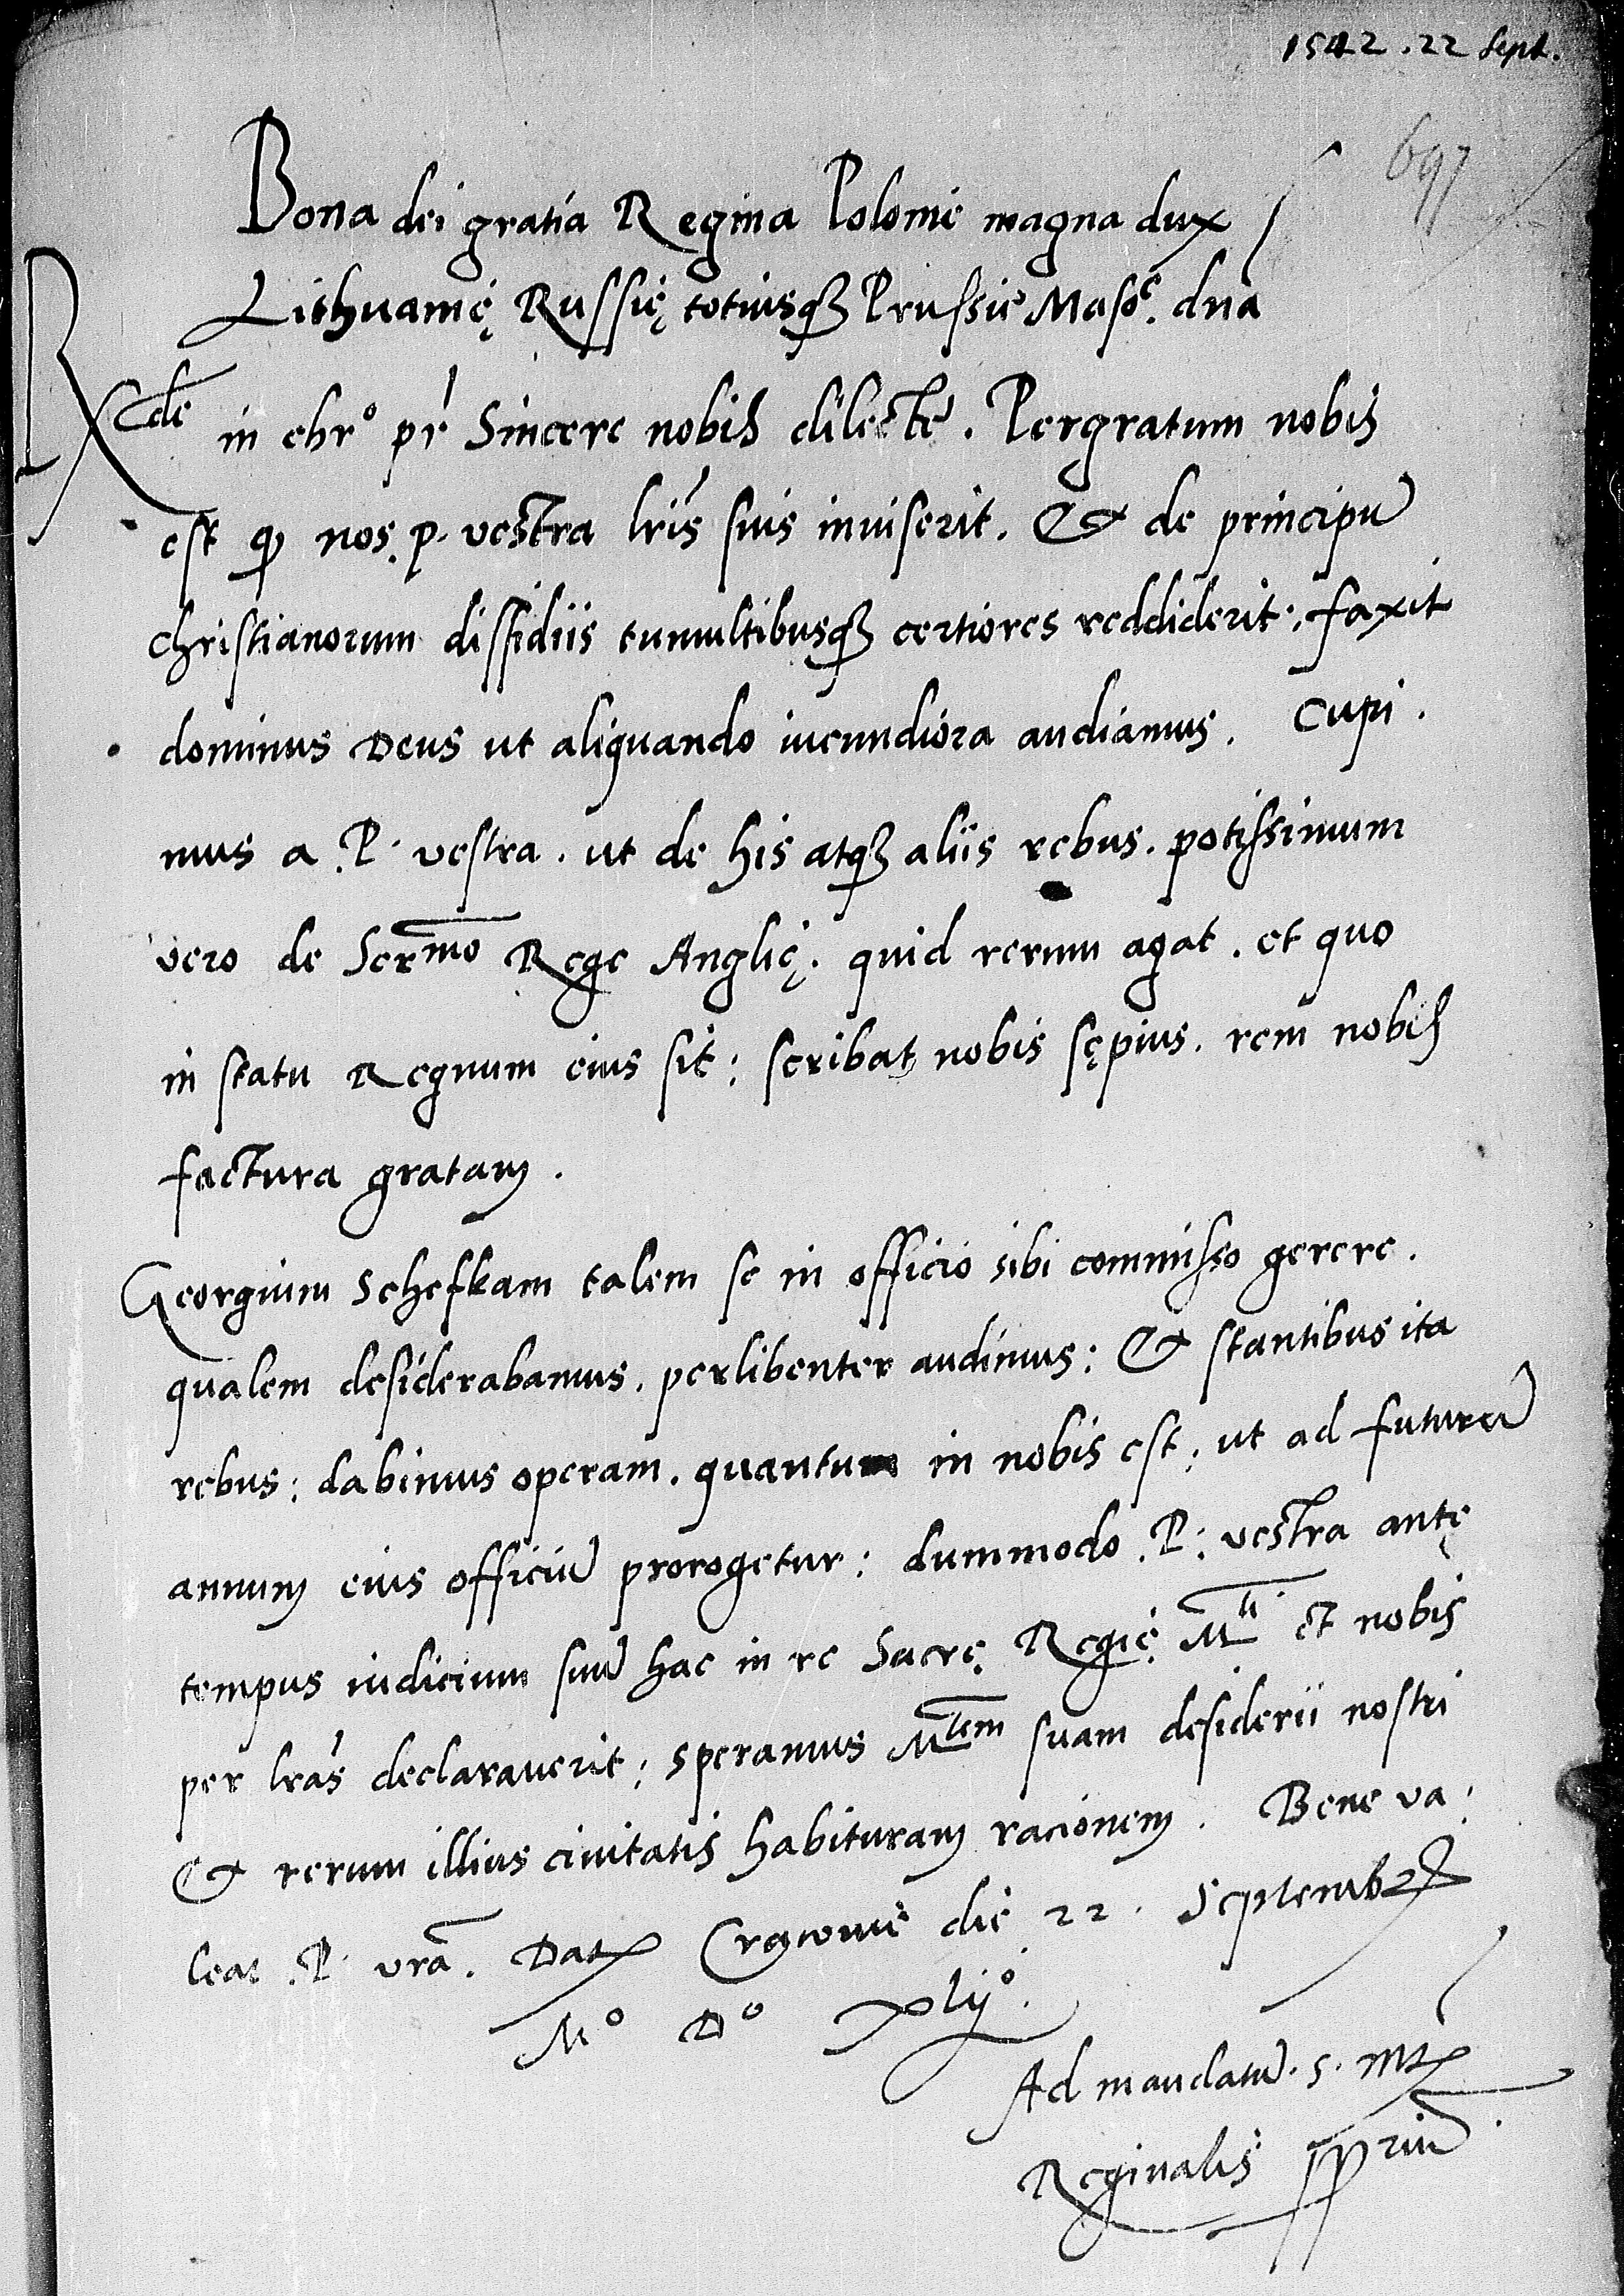 1542. 22 Sept.
697
Bona dei gratia Regina Polonie magna dux
Lithuanię Russię totiusq3 Prussie Masoe. dna
Rde in chro pr Sincere nobis dilecte. Pergratum nobis
est q nos. p. vestra lris suis inuiserit. Et de principu
christianorum dissidiis tumultibusq3 certiores reddiderit; faxit
dominus Deus ut aliquando iucundiora audiamus. Cupi.
mus a .P. vestra. ut de his atq3 aliis rebus. potissimum
vero de Sermo Rege Anglię. quid rerum agat. et quo
in statu Regnum eius sit; scribat nobis sępius. rem nobis
factura gratam.
Georgium Schefkam talem se in officio sibi commisso gerere.
qualem desiderabamus. perlibenter audimus; Et stantibus ita
rebus; dabimus operam. quantum in nobis est; ut ad futuru
annum eius officiu prorogetur; dummodo .P. vestra antę
tempus iudicium suu hac in re Sacrę. Regię. Mti et nobis
per lras declarauerit; speramus Mtem suam desiderii nostri
Et rerum illius ciuitatis habituram racionem. Bene va:
leat .P. vra. Dat Cracouie die 22. Septembr
Mo Do xlijo.
Ad mandatu. S. Mt
Reginalis ppriu.